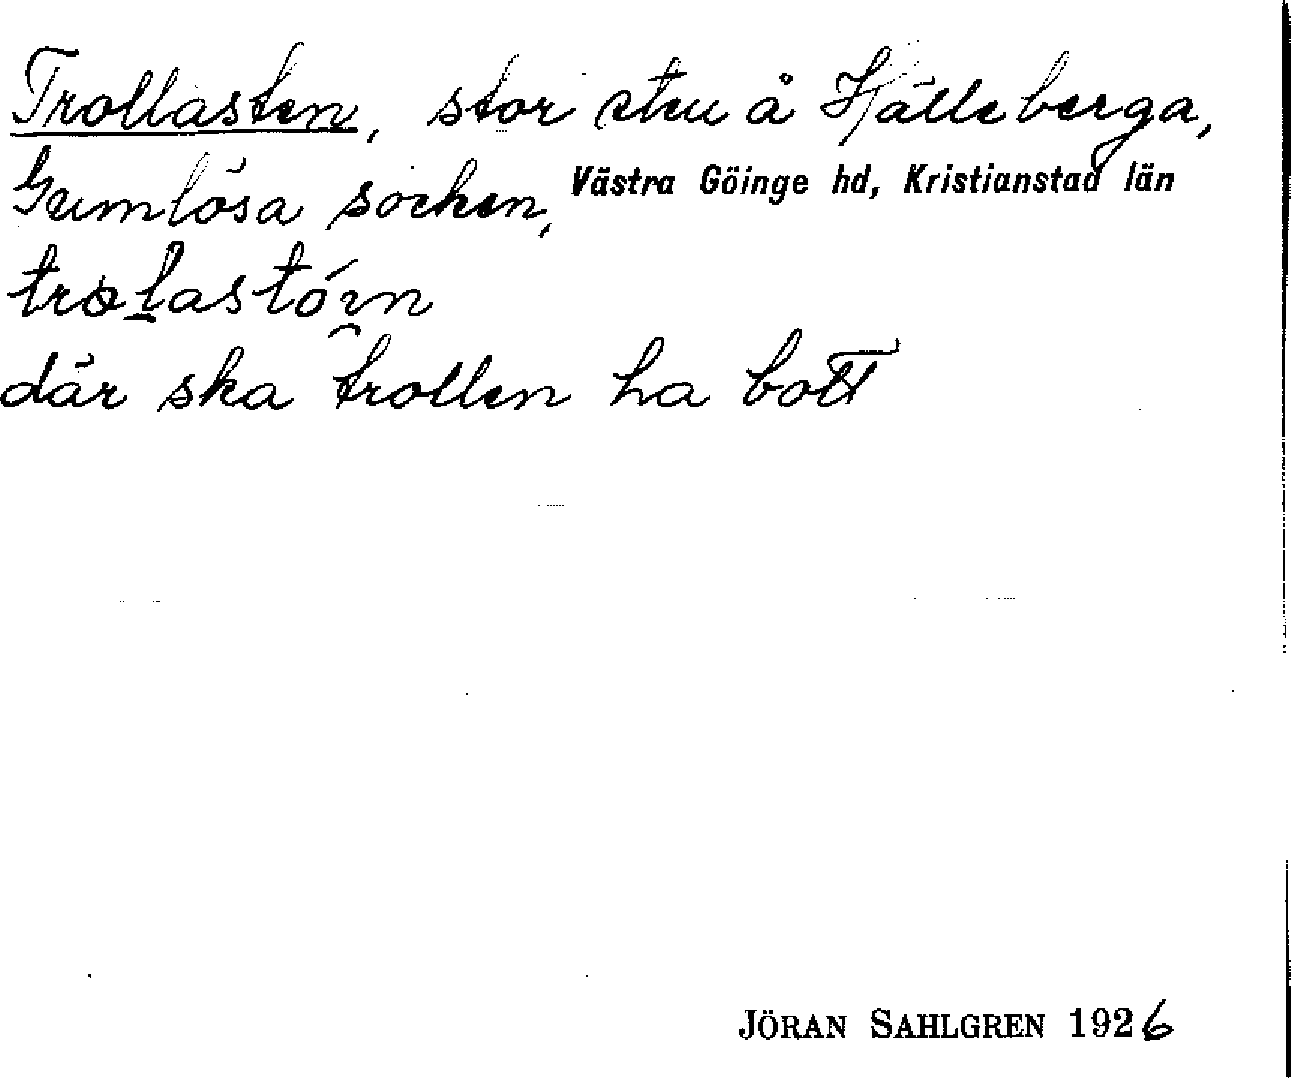 Trollasten, stor sten å Hjälleberga,
Gumlösa socken, Västra Göinge hd, Kristianstad län
där ska trollen ha bott
JÖRAN SAHLGREN 1926